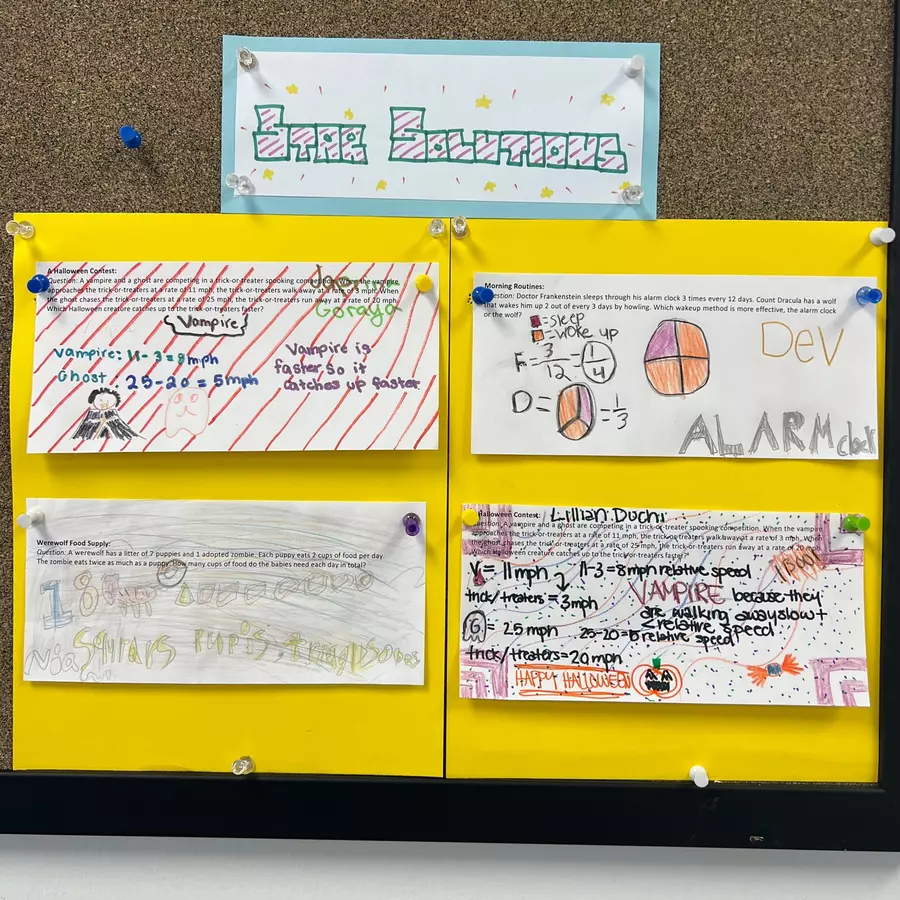 Star Solutions
A Halloween Contest:
Question: A vampire and a ghost are competing in a trick-or-treater spooking competition. When the vampire
approaches the trick-or-treaters at a rate of 11 mph, the trick-or-treaters walk away at a rate of 3 mph. When
the ghost chases the trick-or-treaters at a rate of 25 mph, the trick-or-treaters run away at a rate of 20 mph.
Which Halloween creature catches up to the trick-or-treaters faster?
Goraya
Vampire
Vampire: 11-3=8mph
Ghost: 25-20=5mph
Vampire is
faster, So it
catches up faster
Morning Routines:
Question: Doctor Frankenstein sleeps through his alarm clock 3 times every 12 days. Count Dracula has a wolf
that wakes him up 2 out of every 3 days by howling. Which wakeup method is more effective, the alarm clock
or the wolf?
=sleep
=woke up
F=3/12=1/4
D= =1/3
Dev
ALARM clock
Werewolf Food Supply:
Question: A werewolf has a litter of 7 puppies and 1 adopted zombie. Each puppy eats 2 cups of food per day.
The zombie eats twice as much as a puppy. How many cups of food do the babies need each day in total?
18
Nja
Halloween Contest:
Lillian Duchi
Question: A vampire and a ghost are competing in a trick-or-treater spooking competition. When the vampire
approaches the trick-or-treaters at a rate of 11 mph, the trick-or-treaters walk away at a rate of 3 mph. When
the ghost chases the trick-or-treaters at a rate of 25 mph, the trick-or-treaters run away at a rate of 20 mph.
Which Halloween creature catches up to the trick-or-treaters faster?
V = 11mph 11-3=8mph relative speed
trick/treaters=3mph
VAMPIRE because they
are walking away slow +
relative speed
G = 25mph 25-20=5 relative speed
trick/treaters=20mph
HAPPY HALLOWEEN